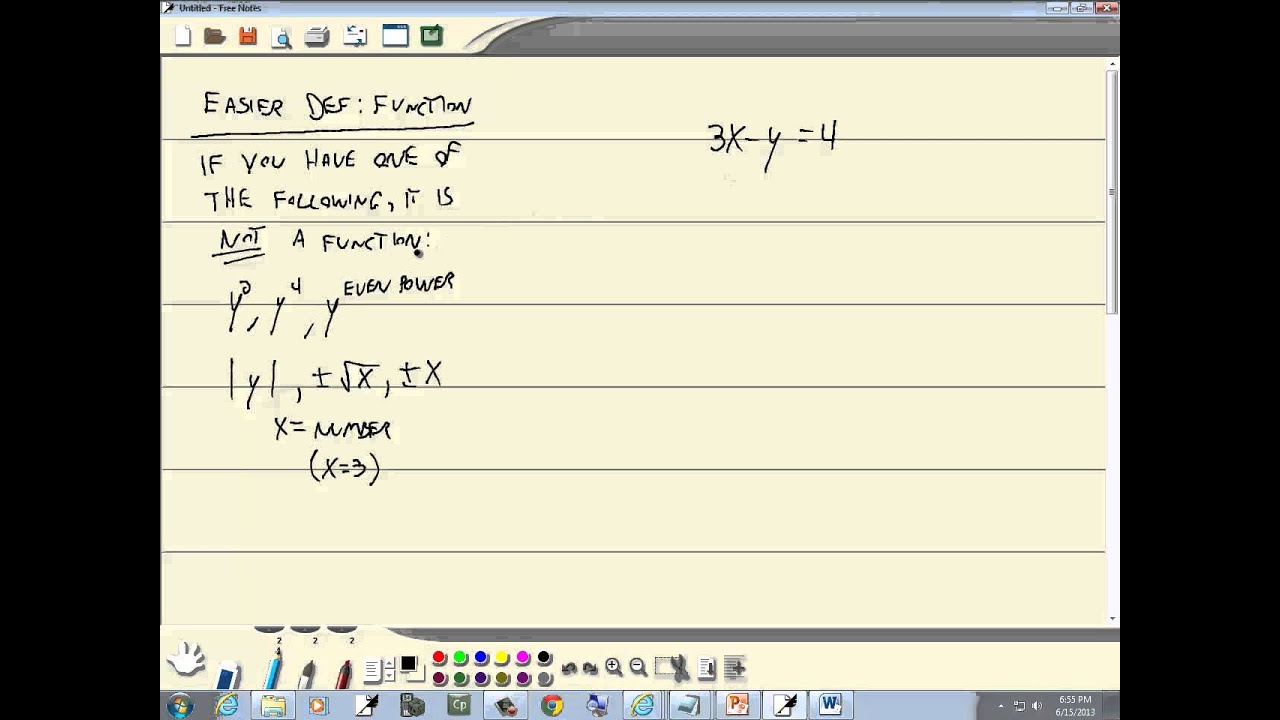 Untitled - Free Notes
EASIER DEF: FUNCTION
IF YOU HAVE ONE OF
THE FOLLOWING, IT IS
NOT A FUNCTION:
y², y⁴, y EVEN POWER
|y|, ±√x, ±x
x = NUMBER
(x=3)
3x-y=4
2 2 2
Cp
6:55 PM
6/15/2013